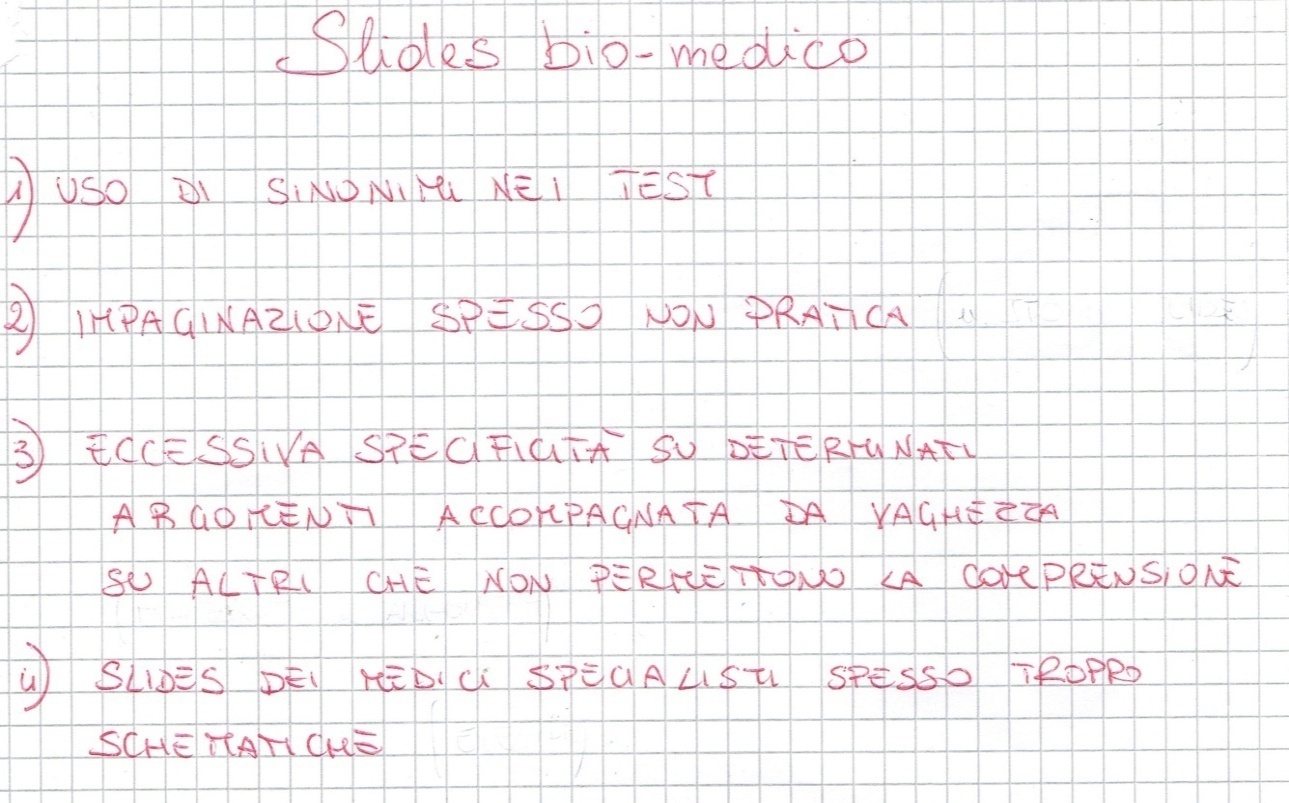 Slides bio-medico
1) USO DI SINONIMI NEI TEST
2) IMPAGINAZIONE SPESSO NON PRATICA
3) ECCESSIVA SPECIFICITÀ SU DETERMINATI
ARGOMENTI ACCOMPAGNATA DA VAGHEZZA
SU ALTRI CHE NON PERMETTONO LA COMPRENSIONE
4) SLIDES DEI MEDICI SPECIALISTI SPESSO TROPPO
SCHEMATICHE